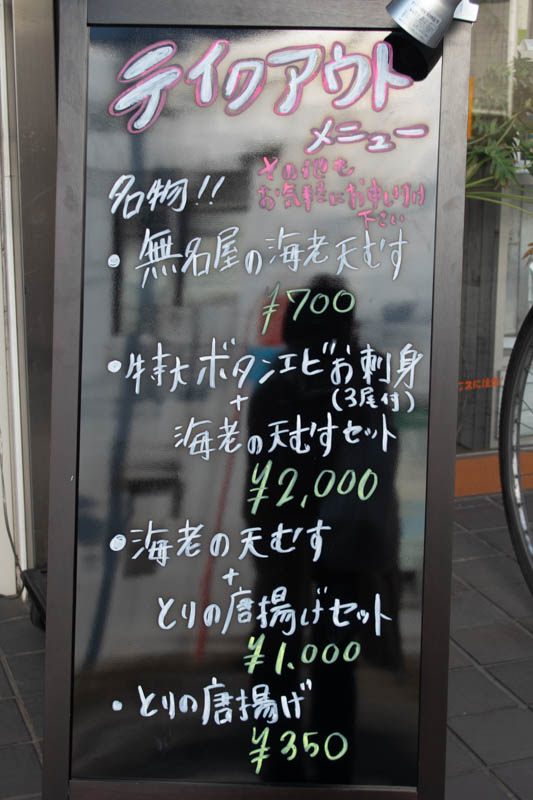 テイクアウト
メニュー
その他も
お気軽にお申し付け
下さい
名物!!
・無名屋の海老天むす
¥700
・特大ボタンエビお刺身
(3尾付)
+
海老の天むすセット
¥2,000
・海老の天むす
+
とりの唐揚げセット
¥1,000
・とりの唐揚げ
¥350